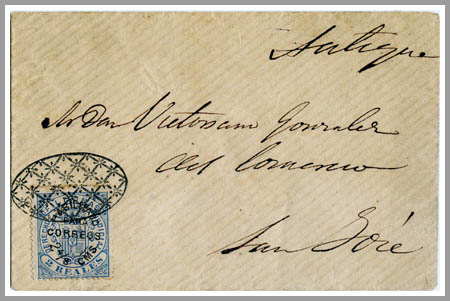 Antigua
Sr Don Victoriano Gonzalez
del Comercio
San José
CORREOS
CMS
2 REALES